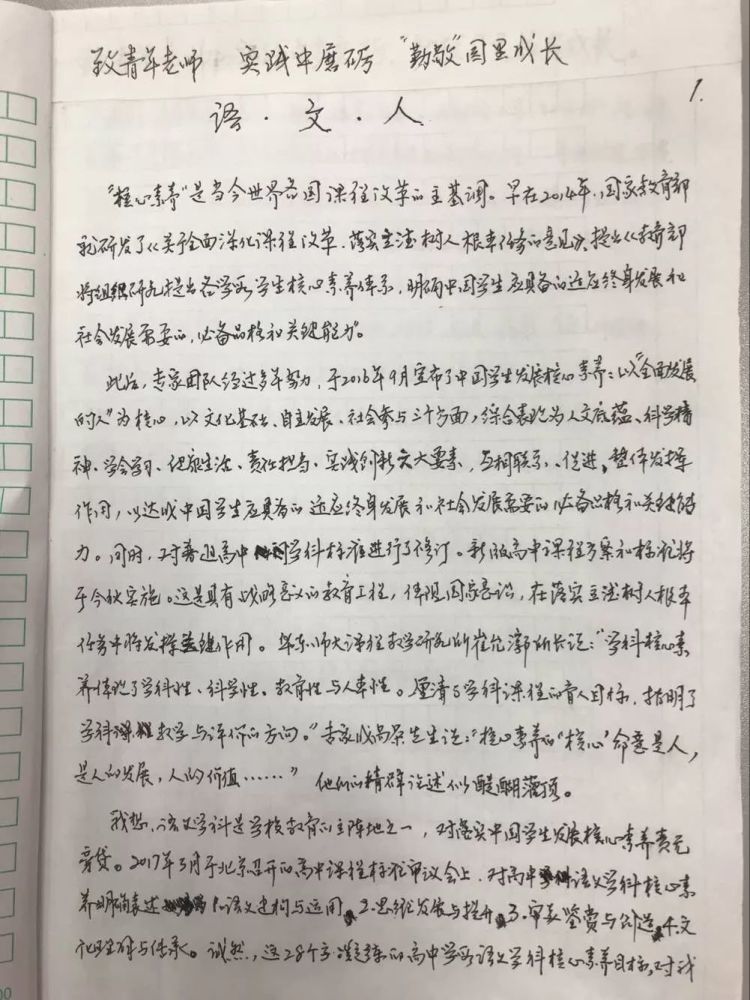 致青年老师 实践中磨砺 “勤敬”园里成长
1.
语·文·人
“核心素养”是当今世界各国课程改革的主基调。早在2014年,国家教育部
就研发了《关于全面深化课程改革、落实立德树人根本任务的意见》,提出《教育部
将组织研究提出各学段学生核心素养体系,明确中国学生应具备的适应终身发展和
社会发展需要的,必备品格和关键能力”。
此后,专家团队经过多年努力,于2016年9月宣布了中国学生发展核心素养:以“全面发展
的人”为核心,以文化基础、自主发展、社会参与三个方面,综合表现为人文底蕴、科学精
神、学会学习、健康生活、责任担当、实践创新六大要素,互相联系、促进,整体发挥
作用,以达成中国学生应具备的适应终身发展和社会发展需要的必备品格和关键能
力。同时,对普通高中学科标准进行了修订。新版高中课程方案和标准将
于今秋实施。这是具有战略意义的教育工程,体现国家意识,在落实立德树人根本
任务中将发挥关键作用。华东师大课程教学研究所崔允漷所长说:“学科核心素
养体现了学科性、科学性、教育性与人本性。厘清了学科课程的育人目标,指明了
学科课程教学与评价的方向。”专家成尚荣先生说:“核心素养的‘核心’命意是人,
是人的发展,人的价值……” 他们的精辟论述似醍醐灌顶。
我想,语文学科是学校教育的主阵地之一,对落实中国学生发展核心素养责无
旁贷。2017年3月于北京召开的高中课程标准审议会上,对高中语文学科核心素
养明确表述 1.语文建构与运用,2.思维发展与提升,3.审美鉴赏与创造,4.文
化理解与传承。诚然,这28个字凝练的高中学段语文学科核心素养目标,对我